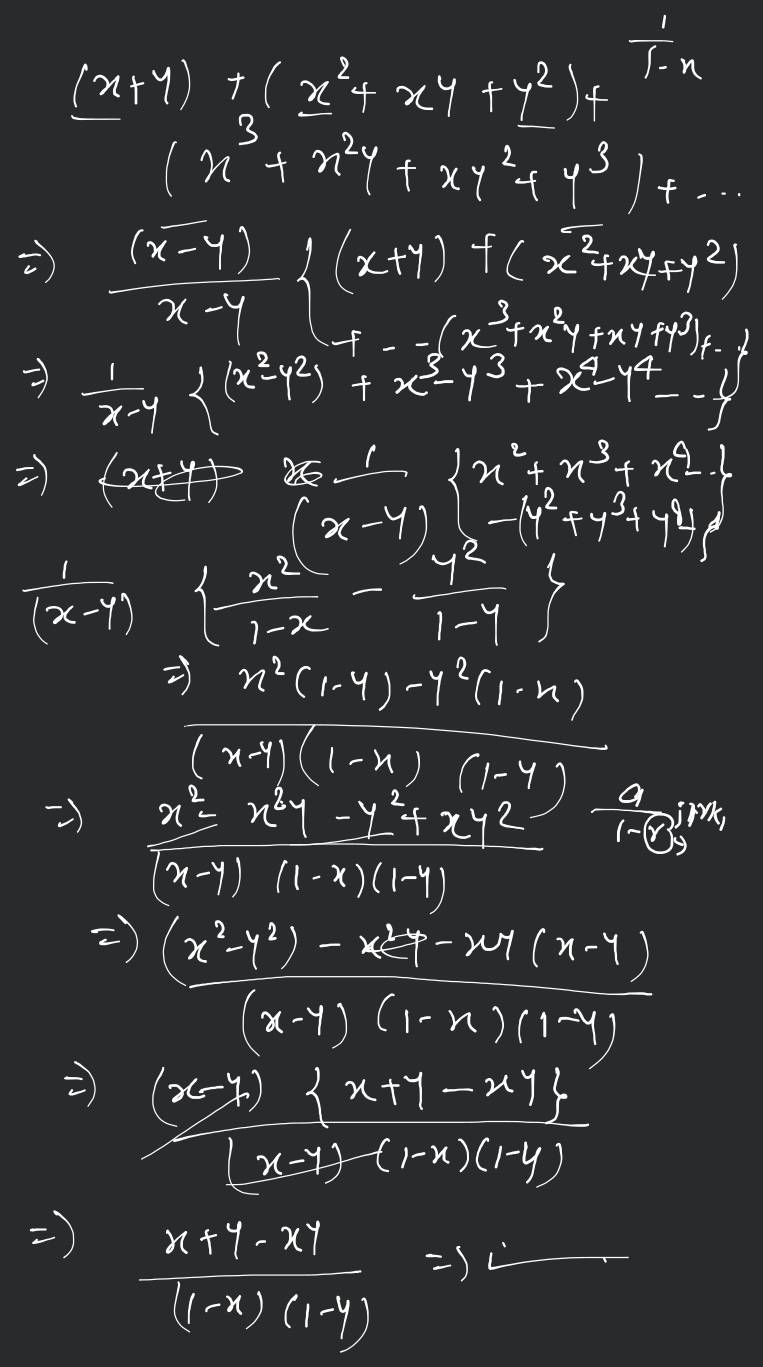 (x+y) + (x²+ xy + y²)+
1/1-x
(x³ + x²y + xy²+ y³) + ...
=) (x-y)/x-y {(x+y) + (x²+xy+y²)
+ - - (x³+x²y+xy+y³)+..}
=) 1/x-y {(x²-y²) + x³-y³ + x⁴-y⁴ - - }
=) (x+y) 1/(x-y) {x²+x³+x⁴..}
-(y²+y³+y⁴)}
1/(x-y) {x²/1-x - y²/1-y}
=) x²(1-y)-y²(1-x)
(x-y)(1-x) (1-y)
=) x²- x²y -y²+ xy2
(x-y) (1-x)(1-y)
a/1-r
=) (x²-y²) - x²y - xy (x-y)
(x-y) (1-x)(1-y)
=) (x-y) {x+y-xy}
(x-y) (1-x)(1-y)
=) x+y-xy =)
(1-x) (1-y)